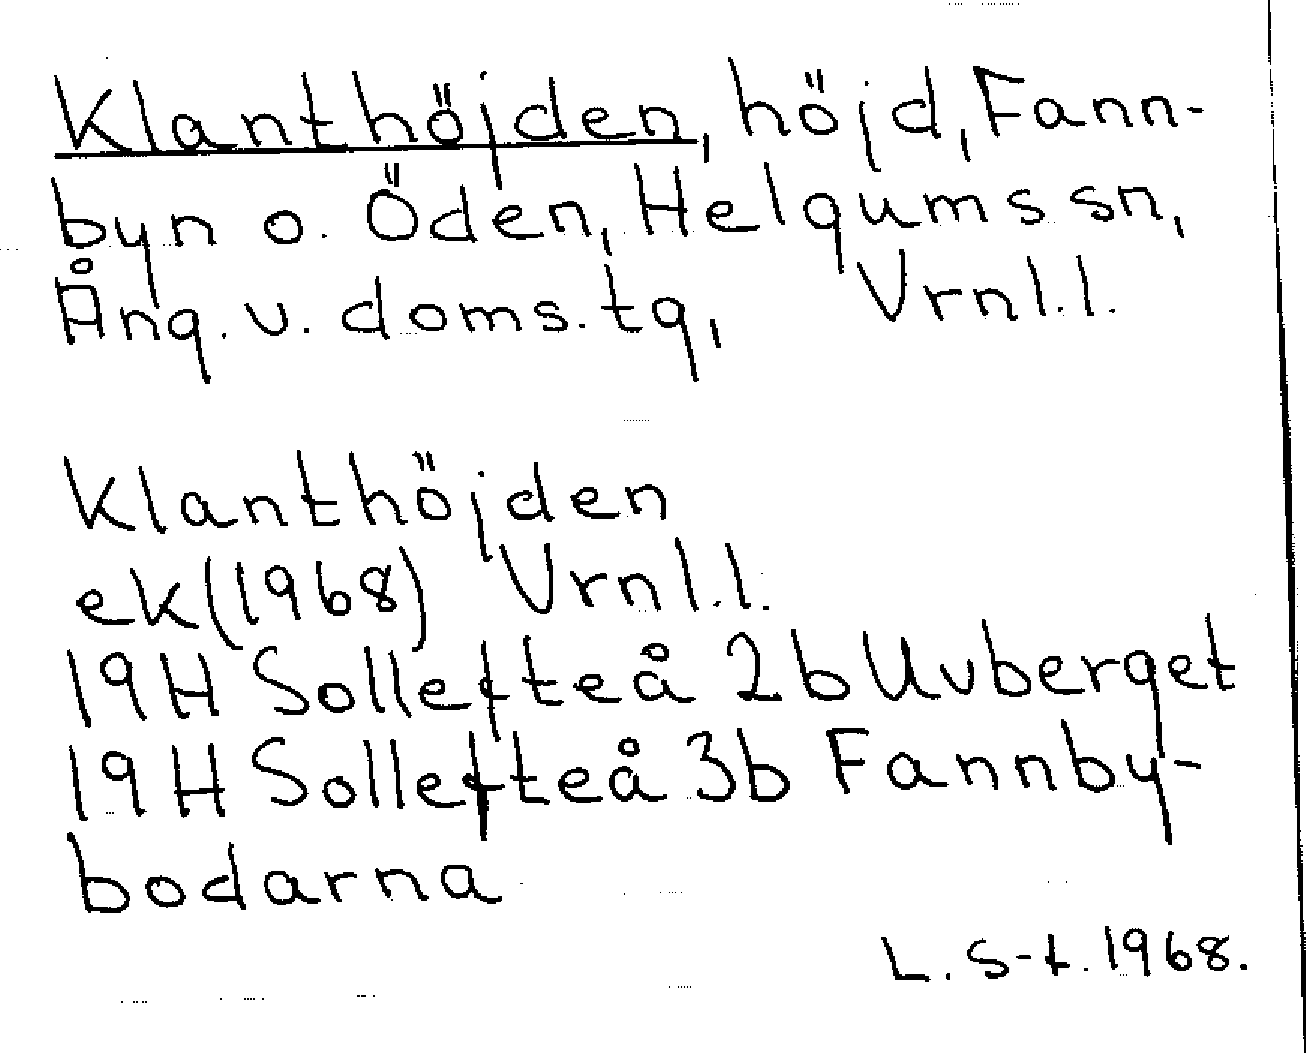 Klanthöjden, höjd, Fann-
byn o. Öden, Helgums sn,
Ång. v. doms.tg, Vrnl.l.
Klanthöjden
ek(1968) Vrnl.l.
19H Sollefteå 2b Uvberget
19H Sollefteå 3b Fannby-
bodarna
L. S-t. 1968.